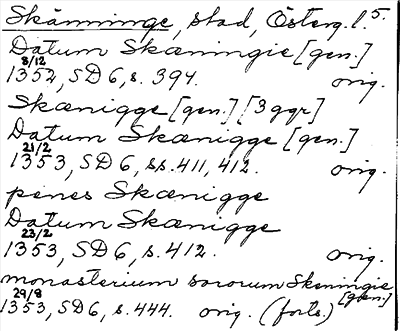 Skänninge, stad, Österg. l. 5.
Datum Skæningie [gen.]
8/12
1352, SD 6, s. 394. orig.
Skænigge [gen.] [3 ggr]
Datum Skænigge [gen.]
21/2
1353, SD 6, ss. 411, 412. orig.
penes Skænigge
Datum Skænigge
23/2
1353, SD 6, s. 412. orig.
monasterium sororum Skeningie
[gen.]
29/8
1353, SD 6, s. 444. orig. (forts.)